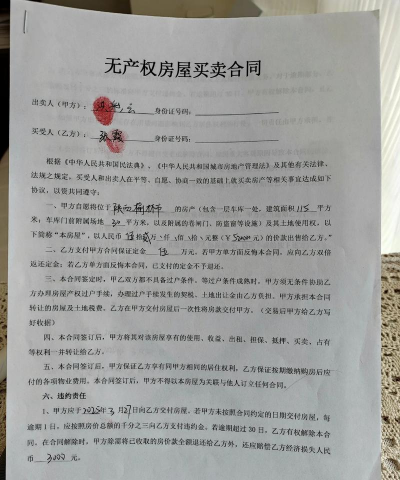 无产权房屋买卖合同
出卖人（甲方）： 身份证号码：
买受人（乙方）：张 身份证号码：
根据《中华人民共和国民法典》、《中华人民共和国城市房地产管理法》及其他有关法律、
法规之规定，买受人和出卖人在平等、自愿、协商一致的基础上就买卖房产等相关事宜达成如下
协议，以资共同遵守：
一、甲方自愿将位于 陕西 的房产（包含一层车库一处，建筑面积 115 平方
米；车库门前附属场地 30 平方米，以及附属的卷闸门、防盗窗等设施）及其土地使用权，以
下简称“本房屋”，以人民币 伍拾 万 仟 佰 拾 元整（￥ 元）的价款出售给乙方。”
二、乙方支付甲方合同保证定金 伍 万元，若甲方单方面反悔本合同，应向乙方双倍
返还定金；若乙方单方面反悔本合同，已支付的定金不予退还。
三、本合同签定时，甲乙双方都不具备过户条件，等过户条件成熟时，甲方须无条件协助乙
方办理房屋产权过户手续，办理过户手续发生的契税、土地出让金由乙方负担。甲方承担本合同
转让的房屋及土地税费。乙方在甲方交付房屋后一次性将房款交付甲方。（交易后甲方给乙方写
好收据）
四、本合同签订后，甲方将其对该房屋享有的使用、收益、出租、担保、抵押、买卖、占有
等权利一并转让给乙方。
五、本合同签订后，甲方保证乙方享有同甲方相同的居住权利，乙方保证按期缴纳购房后应
付的各项物业费用。本合同签订后，甲方不得以本房屋为关联与他人订立任何合同。
六、违约责任
1、甲方应于 2025年 3 月 27日向乙方交付房屋。若甲方未按照合同约定的日期交付房屋，每
逾期 1 日，应按照房价总额的千分之三向乙方支付违约金。若逾期超过 30 日，乙方有权解除本合
同。在合同解除时，甲方除需将已收取的房价款全额退还给乙方外，还应赔偿乙方经济损失人民
币 3000 元。